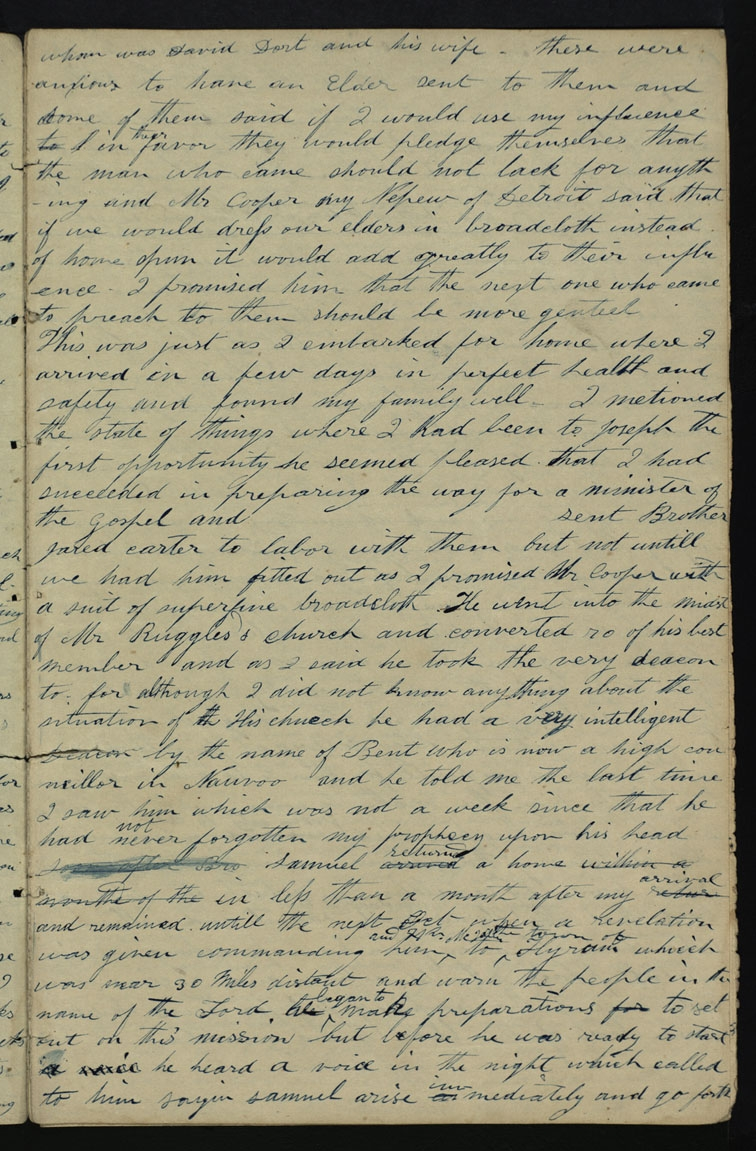 whom was David Dort and his wife - these were
anxious to have an Elder sent to them and
some of them said if I would use my influence
to in their favor they would pledge themselves that
the man who came should not lack for anyth
-ing and Mr Cooper my Nepew of Detroit said that
if we would dress our elders in broadcloth instead
of home spun it would add greatly to their influ
ence - I promised him that the next one who came
to preach to them should be more genteel
This was just as I embarked for home where I
arrived in a few days in perfect health and
safety and found my family well - I metioned
the state of things where I had been to Joseph the
first opportunity he seemed pleased that I had
succeeded in preparing the way for a minister of
the gospel and sent Brother
Jared carter to labor with them but not untill
we had him fitted out as I promised Mr Cooper with
a suit of superfine broadcloth He went into the midst
of Mr Ruggles's church and converted 70 of his best
member and as I said he took the very deacon
to. for although I did not know any thing about the
situation of th His chuech he had a very intelligent
deacon by the name of Bent who is now a high cou
ncillor in Nauvoo and he told me the last time
I saw him which was not a week since that he
had not never forgotten my prophecy upon his head
Bro Samuel arived returned a home within a
month of the in less than a month after my retur arrival
and remained untill the next Oct when a revelation
was given commanding him to town of Hyram which
was near 30 Miles distant and warn the people in the
name of the Lord he began to make preparations for to set
out on this mission but before he was ready to start
a voice he heard a voice in the night which called
to him sayin samuel arise im mediately and go forth